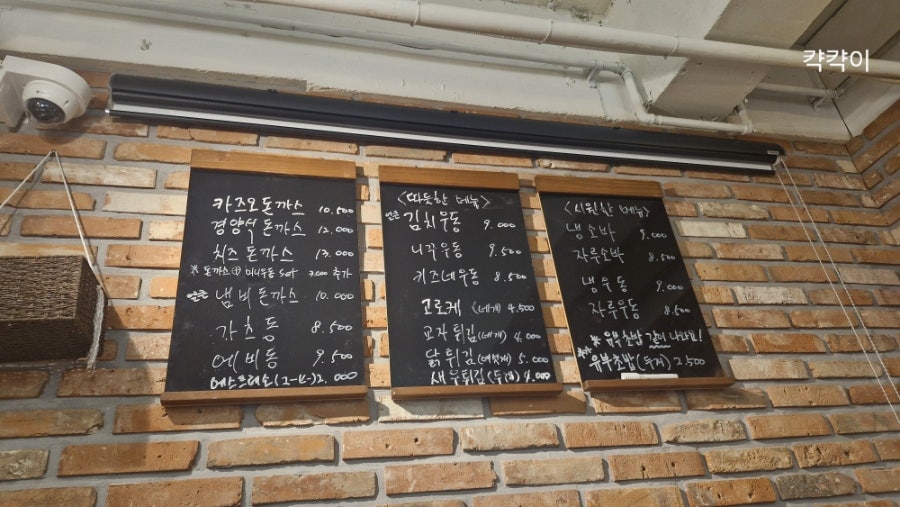 캭캭이
카즈오돈까스 10.500
경양식돈까스 12.000
치즈돈까스 13.000
※ 돈까스 + 미니우동 Set 3.000 추가
얼큰 냄비돈까스 10.000
가츠동 8.500
에비동 9.500
에스프레소(I-U-) 2.000
<따듯한 메뉴>
얼큰 김치우동 9.000
니각우동 9.500
키즈네우동 8.500
고로케 (네개) 4.500
교자튀김(네개) 4.000
닭튀김(여섯개) 5.000
새우튀김(두개) 4.000
<시원한 메뉴>
냉소바 9.000
자루소바 8.500
냉우동 9.000
자루우동 8.500
※ 유부초밥 같이 나와요!
유부초밥(두개) 2.500